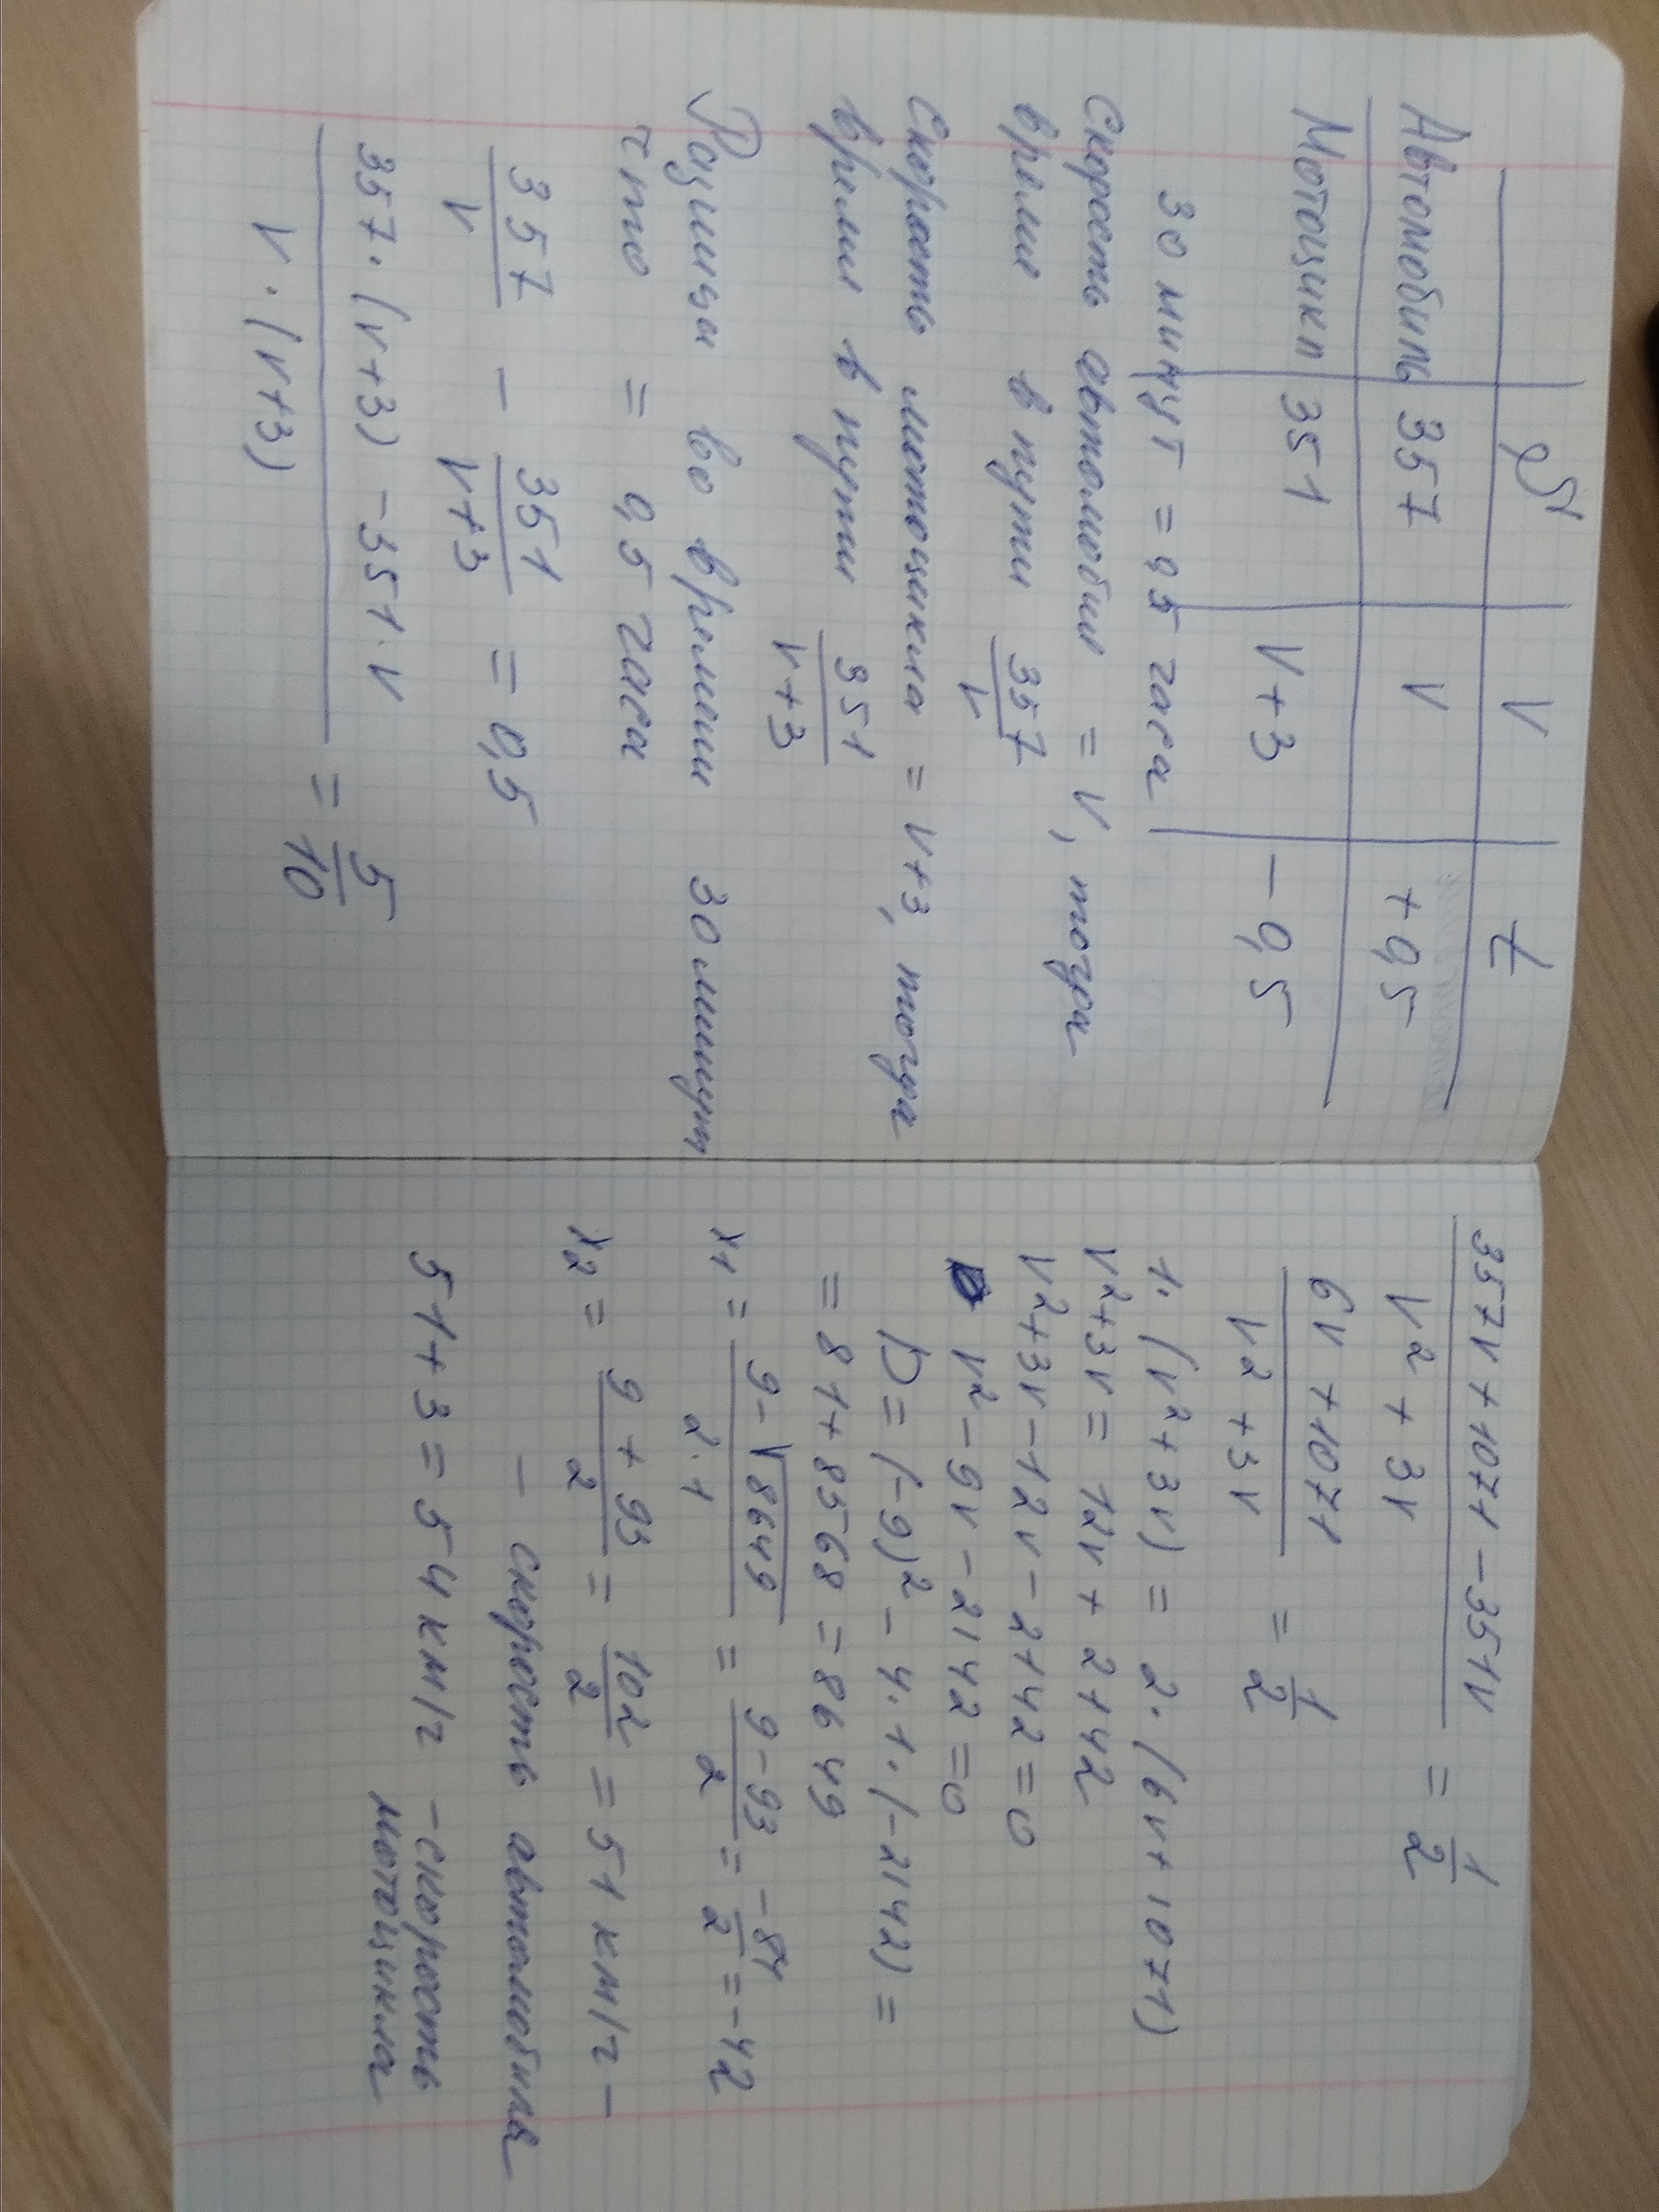 S V t
Автомобиль 357 V +0,5
Мотоцикл 351 V+3 -0,5
30 минут = 0,5 часа
Скорость автомобиля = V, тогда
время в пути 357/V
Скорость мотоцикла = V+3, тогда
время в пути 351/V+3
Разница во времени 30 минут
что = 0,5 часа
357/V - 351/V+3 = 0,5
357·(V+3)-351·V / V·(V+3) = 5/10
357V+1071-351V / V2+3V = 1/2
6V+1071 / V2+3V = 1/2
1·(V²+3V) = 2·(6V+1071)
V²+3V = 12V+2142
V²+3V-12V-2142=0
V²-9V-2142=0
D=(-9)²-4·1·(-2142)=
=81+8568=8649
x1 = 9-√8649 / 2·1 = 9-93/2 = -84/2 = -42
x2 = 9+93/2 = 102/2 = 51 км/ч -
- скорость автомобиля
51+3=54 км/ч - скорость
мотоцикла